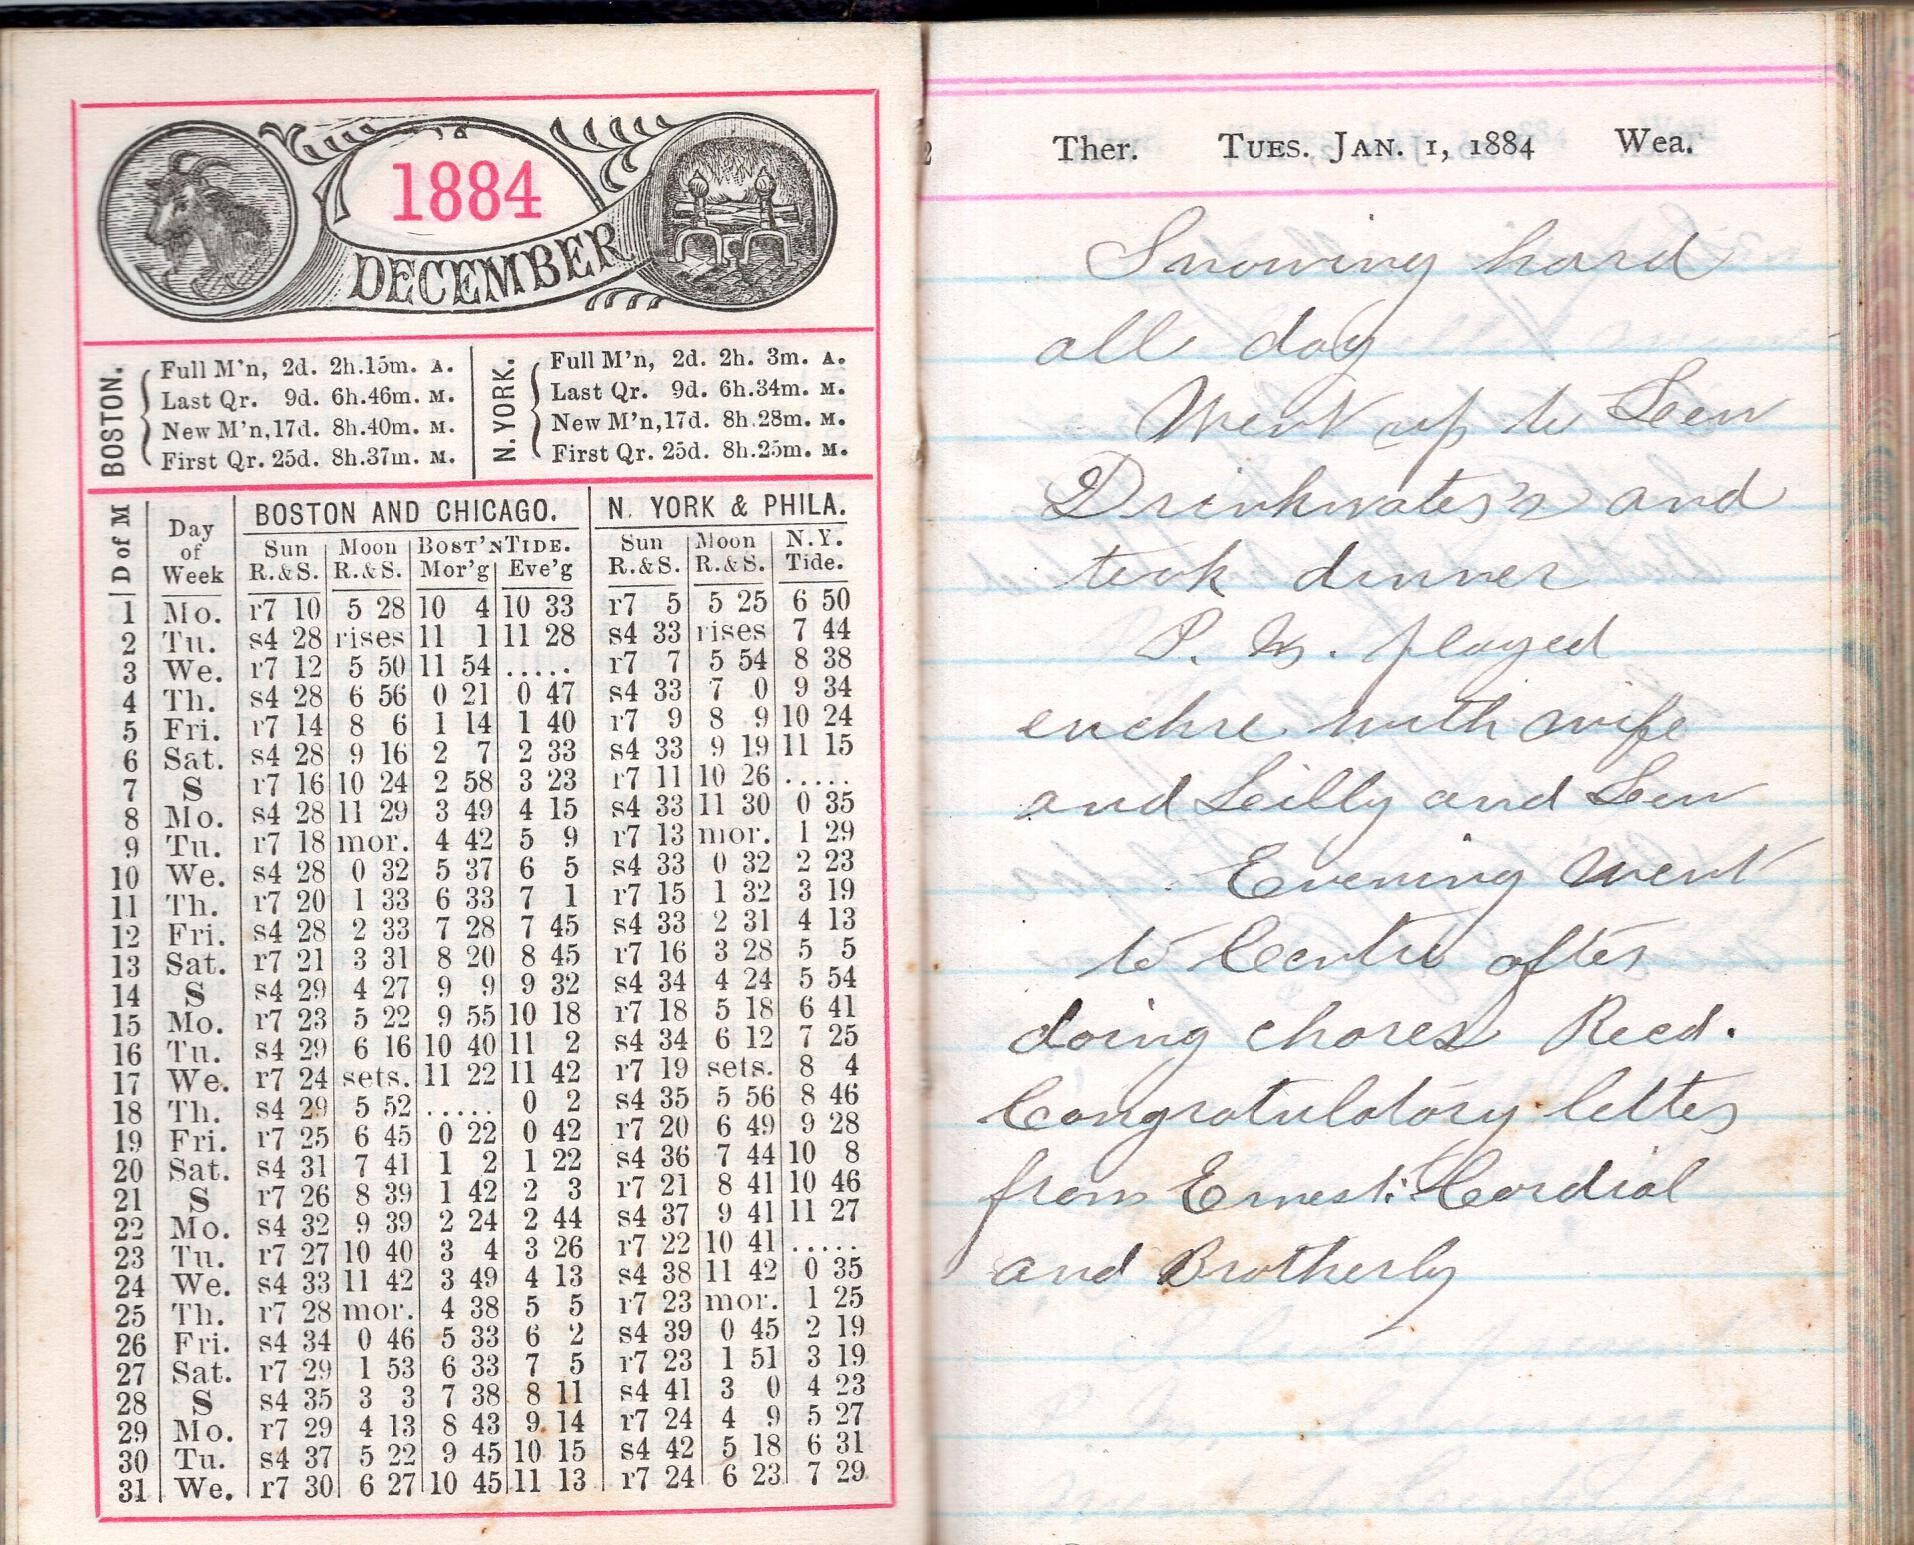 1884
DECEMBER
BOSTON.
Full M'n, 2d. 2h.15m. A.
Last Qr. 9d. 6h.46m. M.
New M'n,17d. 8h.40m. M.
First Qr. 25d. 8h.37m. M.
N. YORK.
Full M'n, 2d. 2h. 3m. A.
Last Qr. 9d. 6h.34m. M.
New M'n,17d. 8h.28m. M.
First Qr. 25d. 8h.25m. M.
D of M Day of Week BOSTON AND CHICAGO. N. YORK & PHILA.
Sun Moon BOST'N TIDE. Sun Moon N.Y.
R.&S. R.&S. Mor'g Eve'g R.&S. R.&S. Tide.
1 Mo. r7 10 5 28 10 4 10 33 r7 5 5 25 6 50
2 Tu. s4 28 rises 11 1 11 28 s4 33 rises 7 44
3 We. r7 12 5 50 11 54 ..... r7 7 5 54 8 38
4 Th. s4 28 6 56 0 21 0 47 s4 33 7 0 9 34
5 Fri. r7 14 8 6 1 14 1 40 r7 9 8 9 10 24
6 Sat. s4 28 9 16 2 7 2 33 s4 33 9 19 11 15
7 S r7 16 10 24 2 58 3 23 r7 11 10 26 .....
8 Mo. s4 28 11 29 3 49 4 15 s4 33 11 30 0 35
9 Tu. r7 18 mor. 4 42 5 9 r7 13 mor. 1 29
10 We. s4 28 0 32 5 37 6 5 s4 33 0 32 2 23
11 Th. r7 20 1 33 6 33 7 1 r7 15 1 32 3 19
12 Fri. s4 28 2 33 7 28 7 45 s4 33 2 31 4 13
13 Sat. r7 21 3 31 8 20 8 45 r7 16 3 28 5 5
14 S s4 29 4 27 9 9 9 32 s4 34 4 24 5 54
15 Mo. r7 23 5 22 9 55 10 18 r7 18 5 18 6 41
16 Tu. s4 29 6 16 10 40 11 2 s4 34 6 12 7 25
17 We. r7 24 sets. 11 22 11 42 r7 19 sets. 8 4
18 Th. s4 29 5 52 ..... 0 2 s4 35 5 56 8 46
19 Fri. r7 25 6 45 0 22 0 42 r7 20 6 49 9 28
20 Sat. s4 31 7 41 1 2 1 22 s4 36 7 44 10 8
21 S r7 26 8 39 1 42 2 3 r7 21 8 41 10 46
22 Mo. s4 32 9 39 2 24 2 44 s4 37 9 41 11 27
23 Tu. r7 27 10 40 3 4 3 26 r7 22 10 41 .....
24 We. s4 33 11 42 3 49 4 13 s4 38 11 42 0 35
25 Th. r7 28 mor. 4 38 5 5 r7 23 mor. 1 25
26 Fri. s4 34 0 46 5 33 6 2 s4 39 0 45 2 19
27 Sat. r7 29 1 53 6 33 7 5 r7 23 1 51 3 19
28 S s4 35 3 3 7 38 8 11 s4 41 3 0 4 23
29 Mo. r7 29 4 13 8 43 9 14 r7 24 4 9 5 27
30 Tu. s4 37 5 22 9 45 10 15 s4 42 5 18 6 31
31 We. r7 30 6 27 10 45 11 13 r7 24 6 23 7 29
Ther. TUES. JAN. 1, 1884 Wea.
Snowing hard
all day
Went up to Len
Drinkwater's and
took dinner
P. M. played
euchre with wife
and Lilly and Len
Evening went
to Centre after
doing chores Recd.
Congratulatory letter
from Ernest: Cordial
and Brotherly